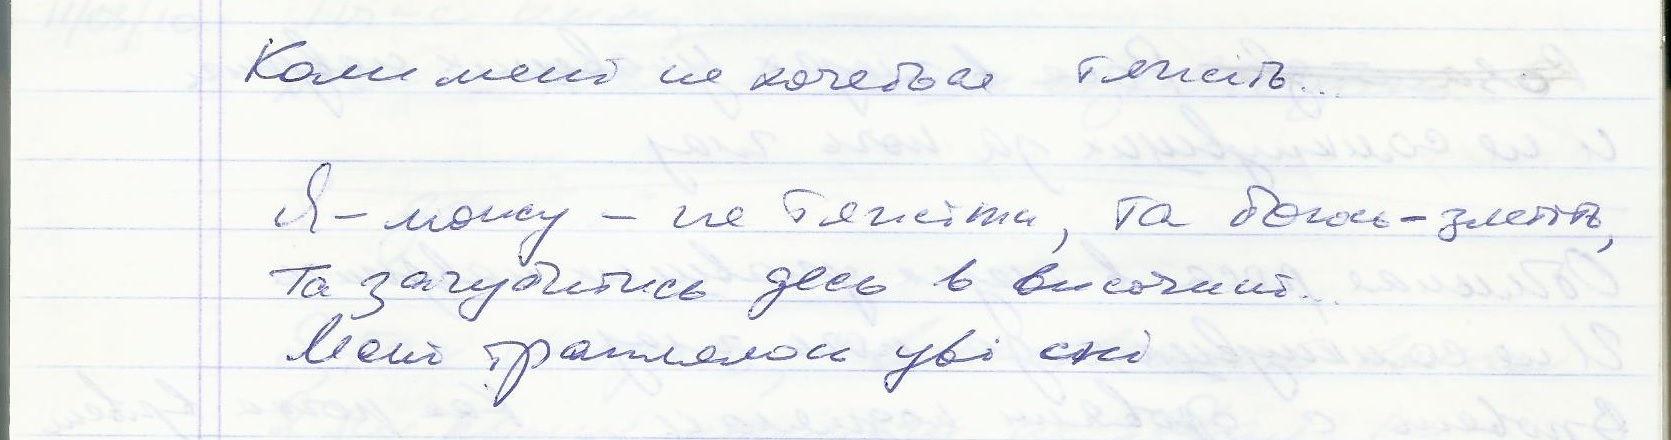 Коли мені не хочеться тяжіть...
Я – можу – не тяжіти, та боюсь – злетіть,
Та загубитись десь в височині...
Мені траплялось уві сні